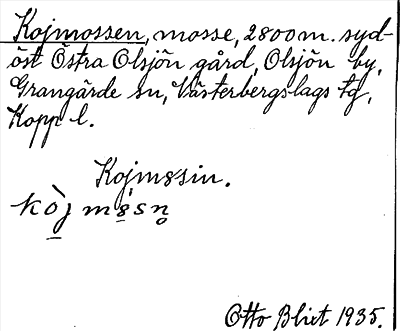 Kojmossen, mosse, 2800 m. syd-
öst Östra Olsjön gård, Olsjön by,
Grangärde sn, Västerbergslags tg,
Kopp. l.
Kojm8sin.
kòj m8sn̥
Otto Blixt 1935.